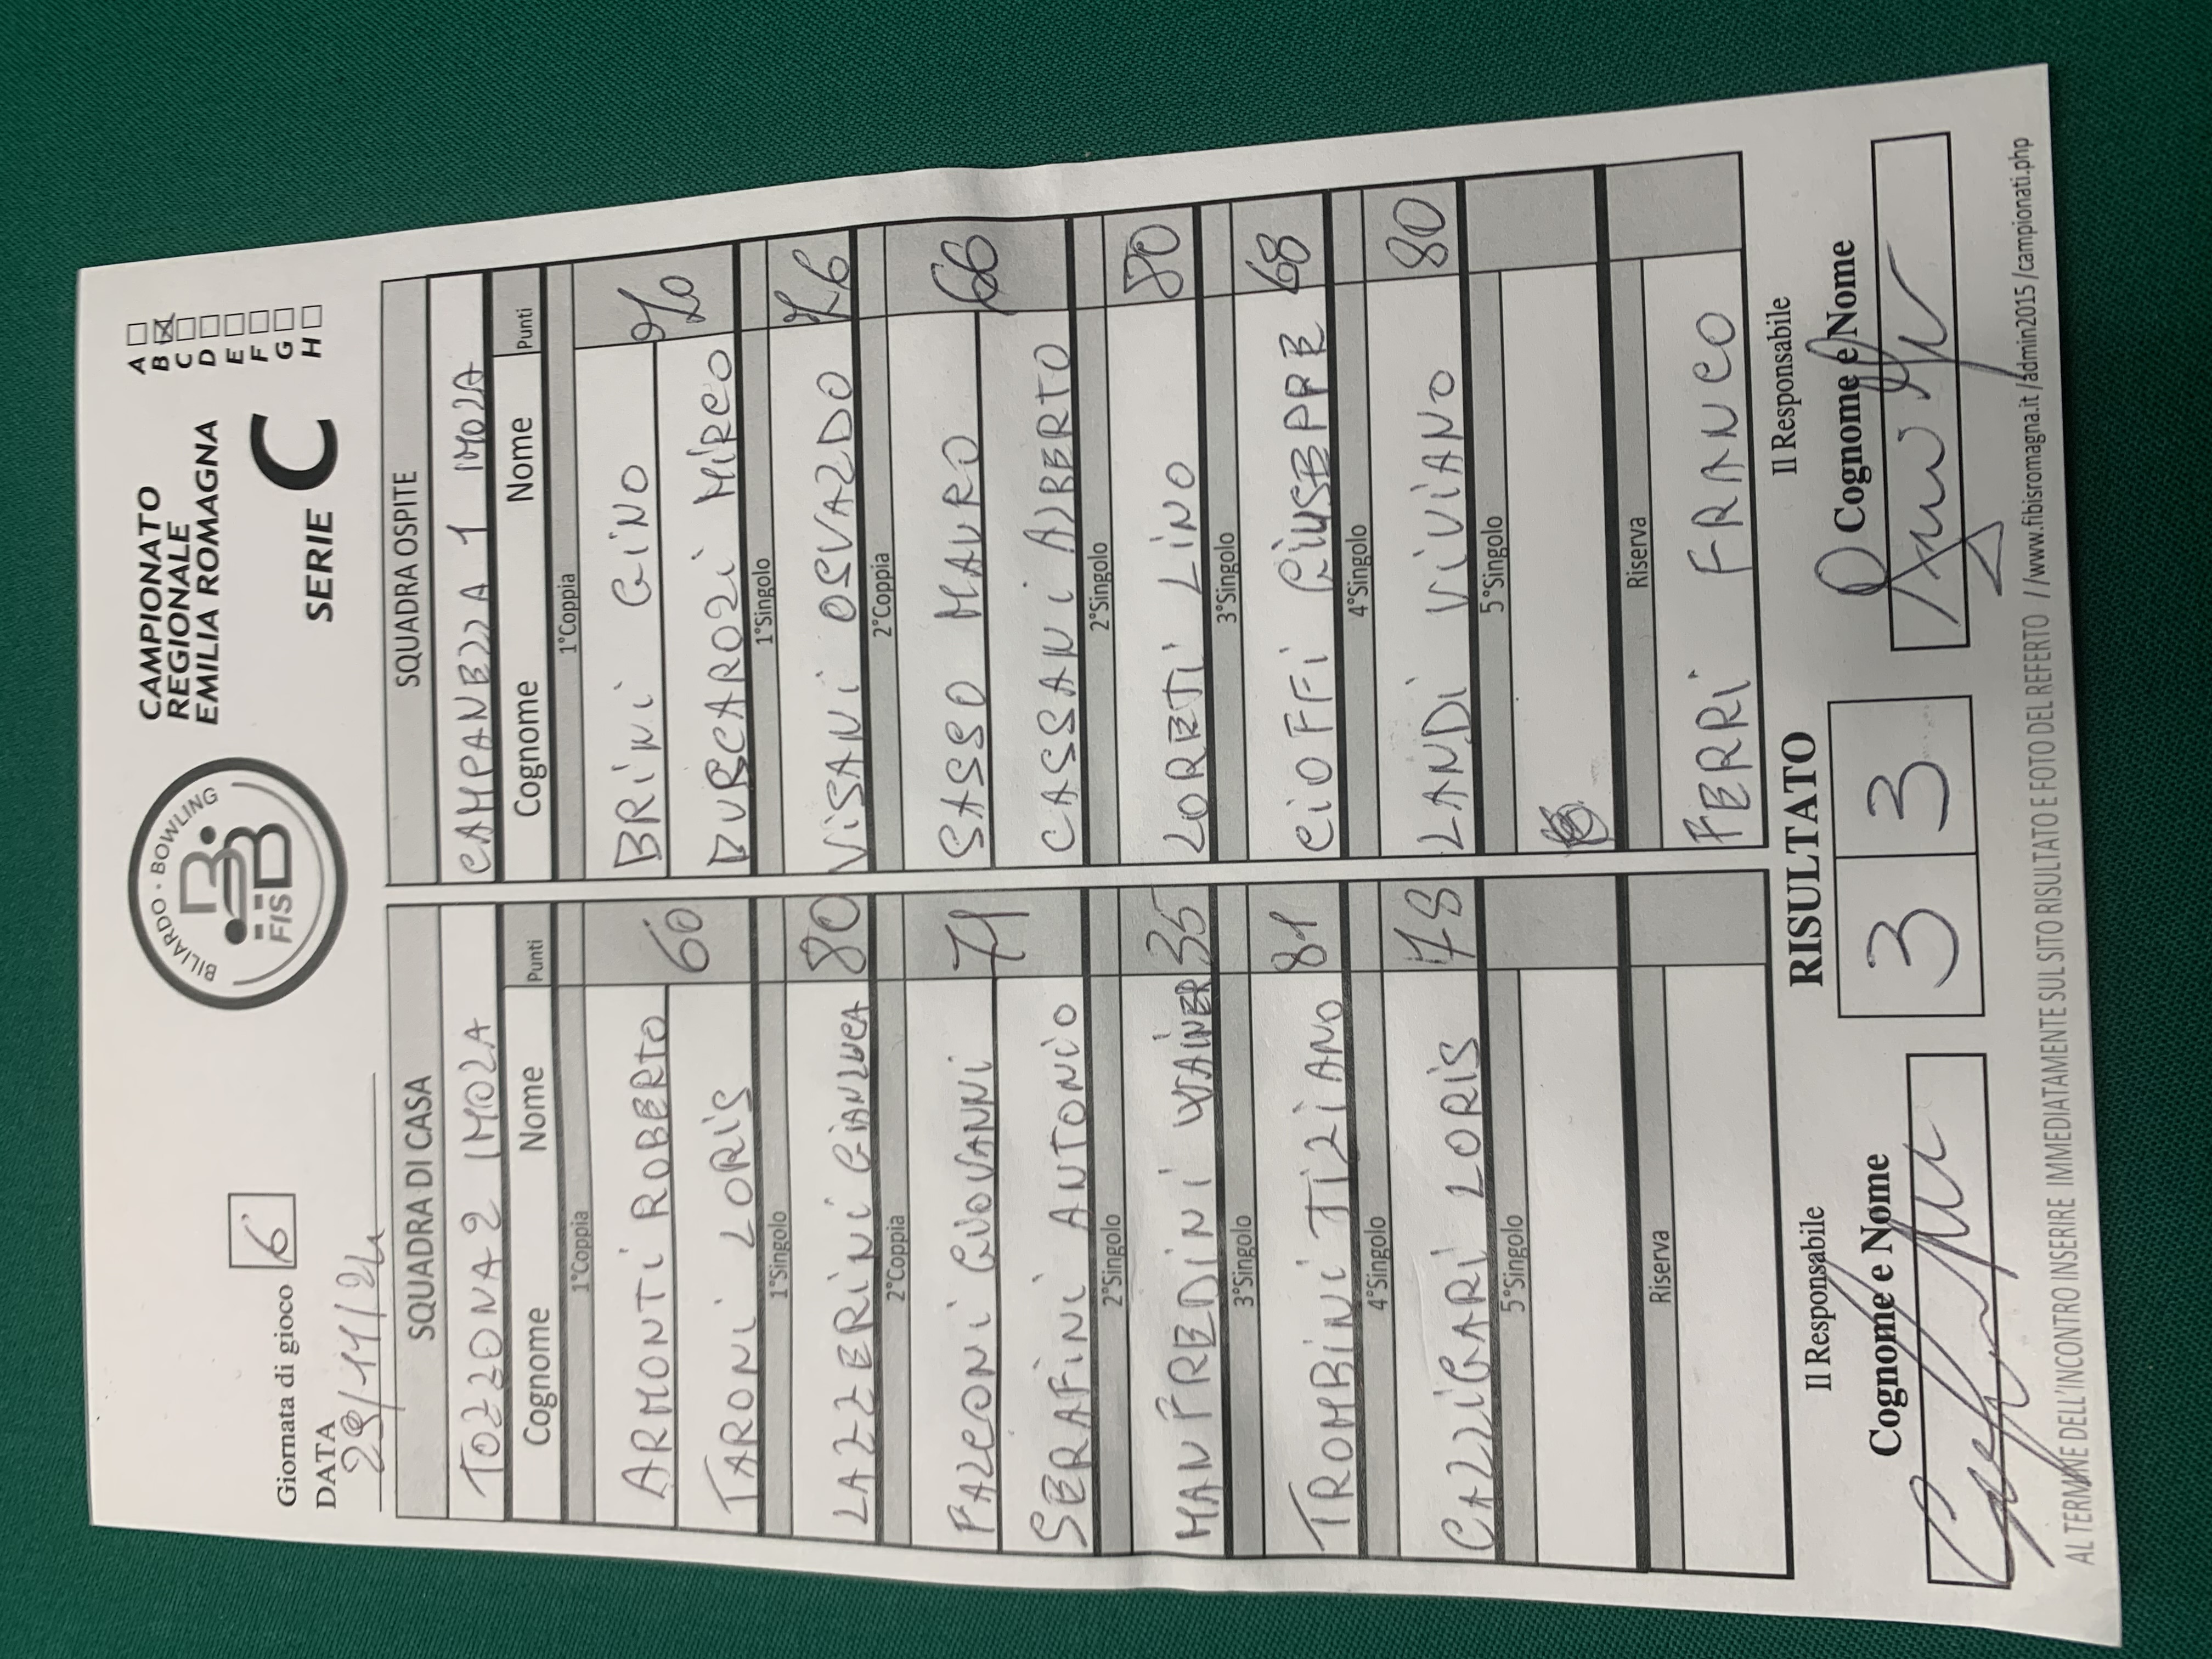 Giornata di gioco 6
DATA
29/11/24
BILIARDO - BOWLING
FISBB
CAMPIONATO
REGIONALE
EMILIA ROMAGNA
SERIE C
A
B
C
D
E
F
G
H
SQUADRA DI CASA
TOZZONA 2 IMOLA
Cognome Nome Punti
1°Coppia
ARMONTI ROBERTO 60
TARONI LORIS
1°Singolo
LAZZERINI GIANLUCA 80
2°Coppia
FALCONI GIOVANNI 71
SERAFINI ANTONIO
2°Singolo
MANFREDINI WAINER 35
3°Singolo
TROMBINI TIZIANO 81
4°Singolo
CAZZIGARI LORIS 78
5°Singolo
Riserva
SQUADRA OSPITE
CAMPANELLA 1 IMOLA
Cognome Nome Punti
1°Coppia
BRINI GINO 70
BURCAROZI MIRCO
1°Singolo
VISANI OSVALDO 76
2°Coppia
SASSO MAURO 66
CASSANI ALBERTO
2°Singolo
LORETI LINO 80
3°Singolo
CIOFFI GIUSEPPE 68
4°Singolo
LANDI VIVIANO 80
5°Singolo
Riserva
FERRI FRANCO
Il Responsabile
Cognome e Nome
RISULTATO
3 3
Il Responsabile
Cognome e Nome
AL TERMINE DELL'INCONTRO INSERIRE IMMEDIATAMENTE SUL SITO RISULTATO E FOTO DEL REFERTO //www.fibisromagna.it /admin2015 /campionati.php